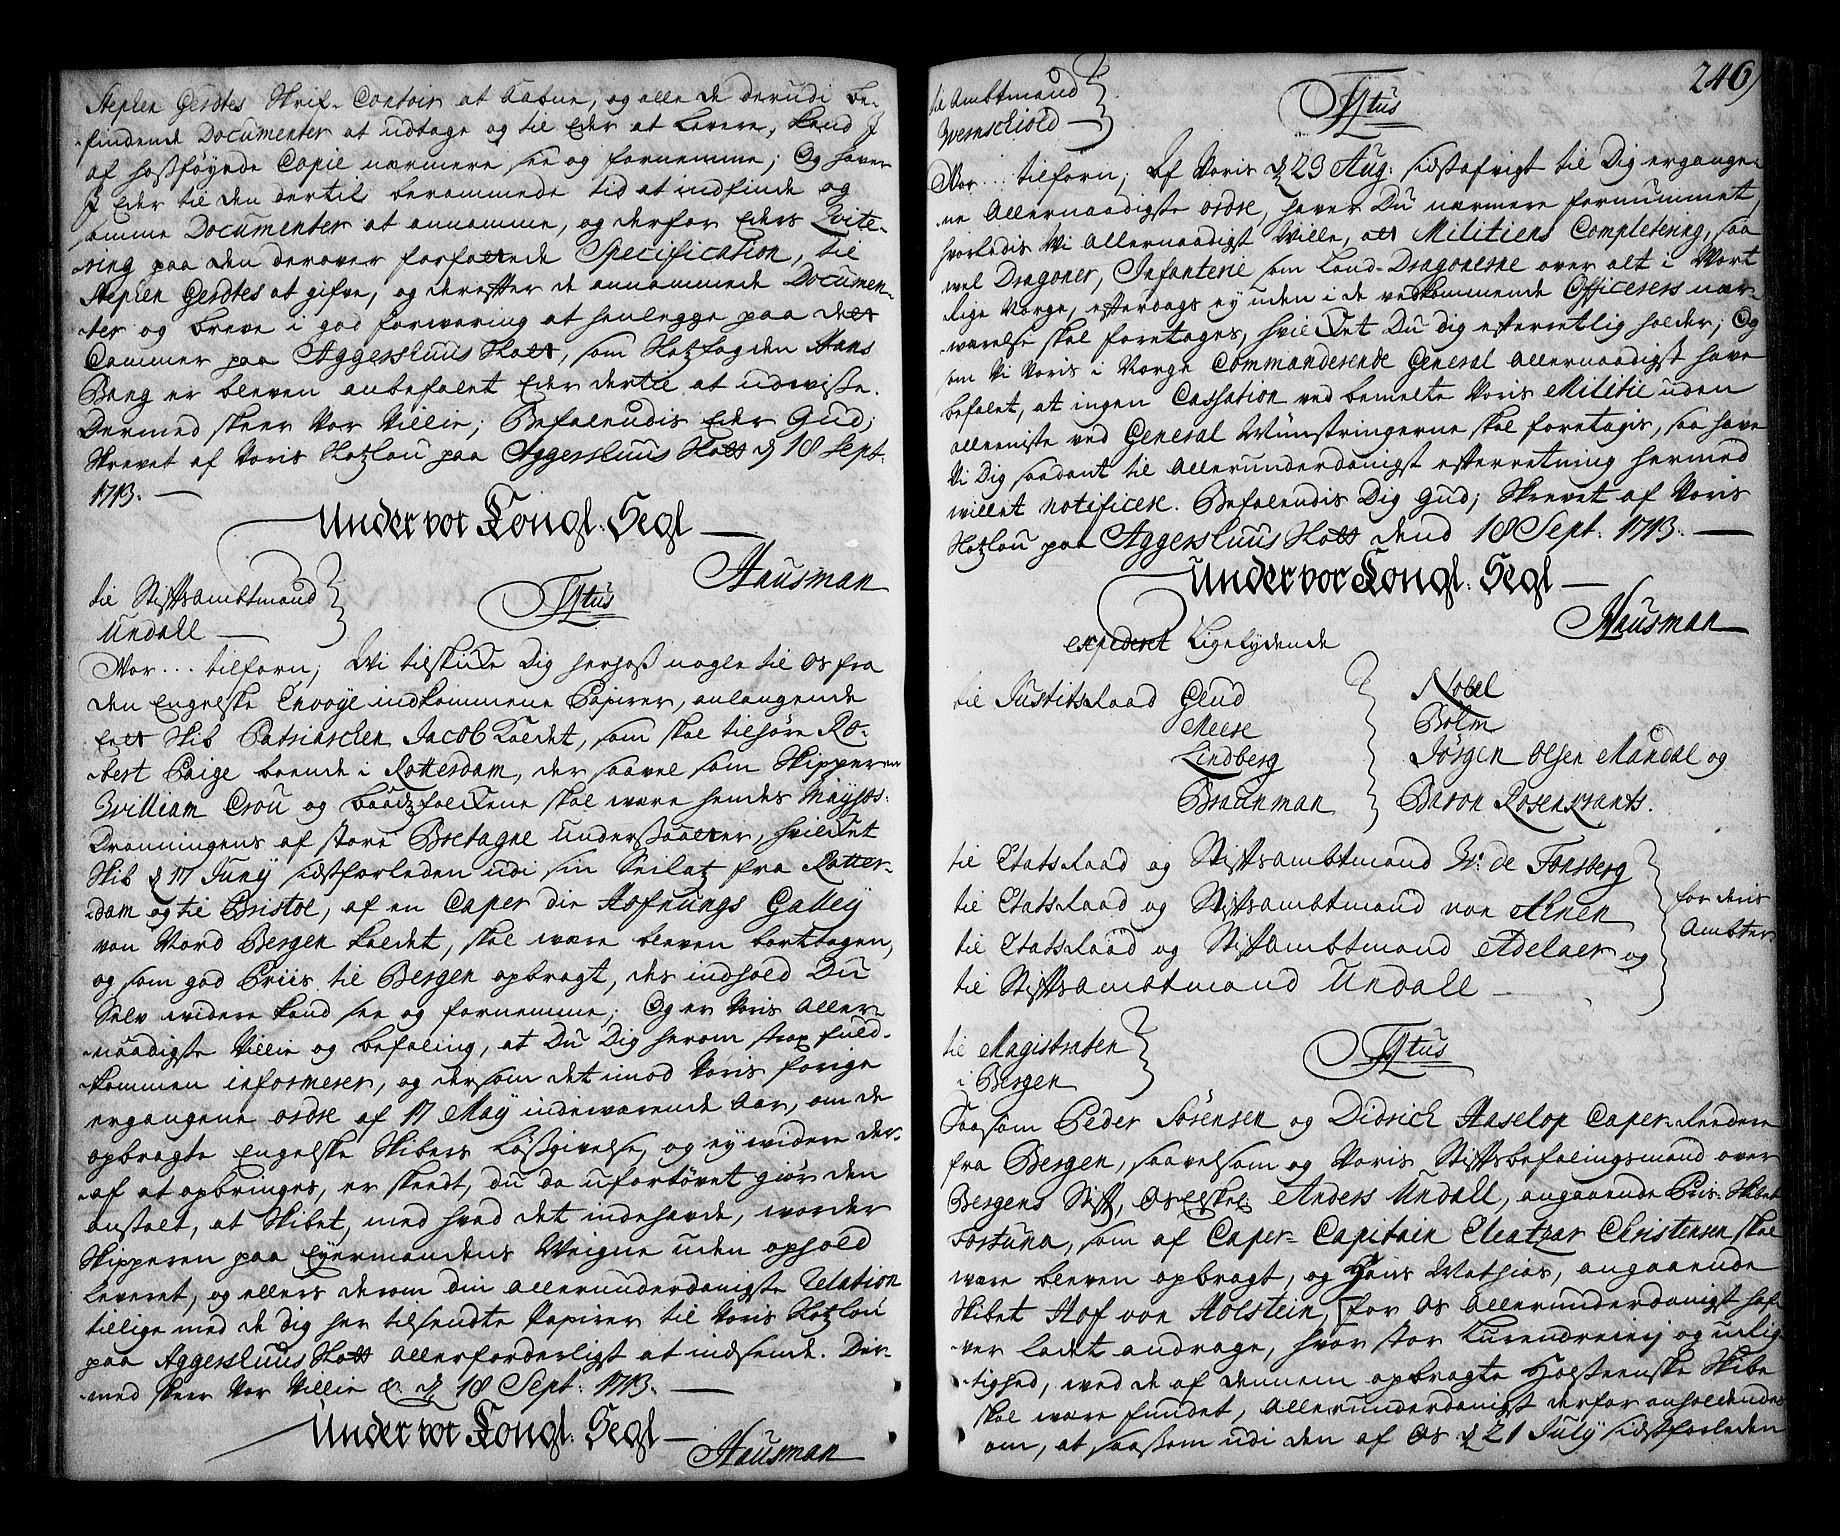 Stephen Gerdtes Skrif-Contoir at aabne, og alle de derudi be-
findende Documenter at udtage og til Eder at levere, kand J
af hosføyede Copie nærmere see og fornemme; Og haver
J Eder til den dertil berammede tid at indfinde og
samme Documenter at annamme, og derfor Eders Qvite-
ring paa den derover forfattede Specification, til
Stephen Gerdtes at gifve, og derefter de annammede Documen-
ter og breve i god forvaring at henlegge paa det
Cammer paa Aggershuus Slott, som Slotzfogden Hans
Bang er bleven anbefalet Eder dertil at udvisse.
Dermed skeer Vor Villie; Befalendis Eder Gud;
Skrevet af Voris Slotzlou paa Aggershuus Slott d 18 Sept.
1713. —
Under vor Congl. Segl —
Hausman
til Stiftsambtmand
Undall —
Titus
Vor... tilforn; Wi tilskicke Dig herhos nogle til Os fra
den Engelske Envoye indkommene Papirer, anlangende
Eet Skib Patriarchen Jacob kaldet, som skal tilhøre Ro-
bert Paige boende i Rotterdam, der saavel som Skipperen
William Crou og baadzfolckene skal være hendes Mayhts:
Dronningens af store Bretagne Undersaatter, hvilcket
Skib d 17 Junij sidstforleden udi sin Seilatz fra Rotter-
dam og til Bristol, af en Caper die Hofnungs Galley
von Nord Bergen kaldet, skal være bleven borttagen,
og som god Priis til Bergen opbragt, des indhold Du
Selv widere kand see og fornemme; Og er Voris Aller-
naadigste Villie og befaling, at Du Dig herom strax fuld-
kommen informerer, og dersom det imod Voris forige
ergangene ordre af 17 May indeværende Aar, om de
opbragte Engelske Skibers Løsgivelse, og ey widere der-
af at opbringes, er skeedt, du da ufortøvet giør den
anstalt, at Skibet, med hvad det indehavde, worder
Skipperen paa Eyermandens Weigne uden ophold
Leveret, og ellers derom din allerunderdanigste Relation
tillige med de dig her tilsendte Papirer til Voris Slotzlou
paa Aggershuus Slott allerforderligst at indsende. Der-
med skeer Vor Villie &. d 18 Sept: 1713. —
Under vor Congl. Segl —
Hausman
246
til Ambtmand
Wernschiold —
Titus
Vor... tilforn; Af Voris d 23 Aug: sidstafvigt til Dig ergange-
ne Allernaadigste ordre, haver Du nærmere fornummet,
hvorledis Wi Allernaadigst Wille, att Militiens Completering, saa
wel Dragoner, Infanterie som Land-Dragonerne over alt i Vort
Rige Norge, efterdags ey uden i de vedkommende Officerers nær-
værelse skal foretages, hvilcket Du dig efterretlig holder; Og
som Vi Voris i Norge Commanderende General Allernaadigst have
befalet, at ingen Cassation ved bemelte Voris Militie uden
alleeniste ved General Münstringerne skal foretages, saa have
Vi Dig saadant til Allerunderdanigst efterretning hermed
willet notificere. Befalendis Dig Gud; Skrevet af Voris
Slotzlou paa Aggershuus Slott dend 18 Sept: 1713. —
Under vor Congl. Segl —
Hausman
expederet Ligelydende
til Justitsraad Glud
Meese
Lindberg
Braunman
Nobel
Bolm
Jørgen Olsen Mandal og
Baron Rosenkrants.
til Etatsraad og Stiftsambtmand W: de Tonsberg
til Etatsraad og Stiftsambtmand von Ahnen
til Etatsraad og Stiftsambtmand Adelaer og
til Stiftsambtmand Undall —
for deris
Ambter.
til Magistraten
i Bergen
Titus
Saasom Peder Sörensen og Didrich Haselop Caper-Reedere
fra Bergen, saavelsom og Voris Stiftsbefalingsmand over
Bergens Stift, Os Elskel. Anders Undall, angaaende Pris-Skibet
Fortuna, som af Caper-Capitain Eleatzar Christensen skal
være bleven opbragt, og Hans Mathias, angaaende
Skibet Hof von Holstein, for Os Allerunderdanigst haf-
ver ladet andrage, hvor stor Lurendreierij og urig-
tighed, wed de af dennem opbragte Holsteenske Skibe
skal være fundet, Allerunderdanigst derfor anholdendes
om, at saasom udi den af Os d 21 July sidstforleden